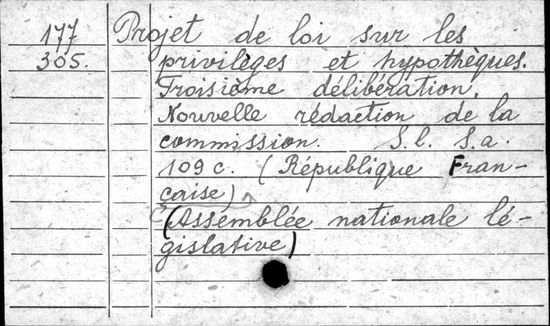 177 Projet de loi sur les
305. privilèges et hypothèques.
Troisième délibération.
Nouvelle rédaction de la
commission. S.l. S.a.
109 c. (République Fran-
çaise)
(Assemblée nationale lé-
gislative)